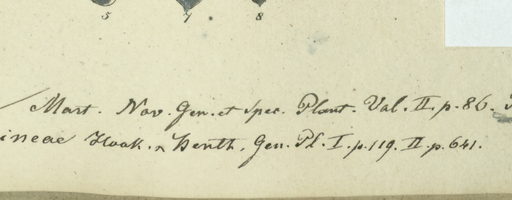 5 7. 8
Mart. Nov. Gen. et Spec. Plant. Vol. II. p. 86.
ineae Hook. & Benth. Gen. Pl. I. p. 119. II. p. 641.